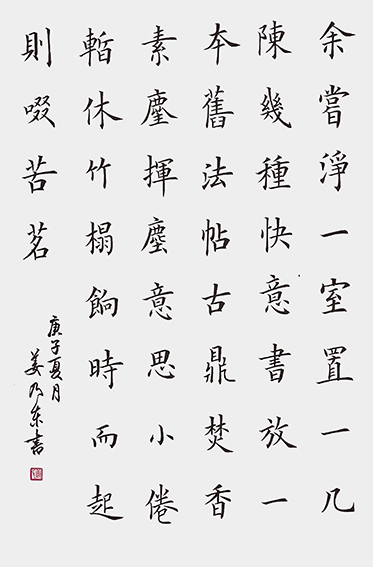 余嘗淨一室置一几
陳幾種快意書放一
本舊法帖古鼎焚香
素麈揮塵意思小倦
暫休竹榻餉時而起
則啜苦茗
庚子夏月
姜乃东書